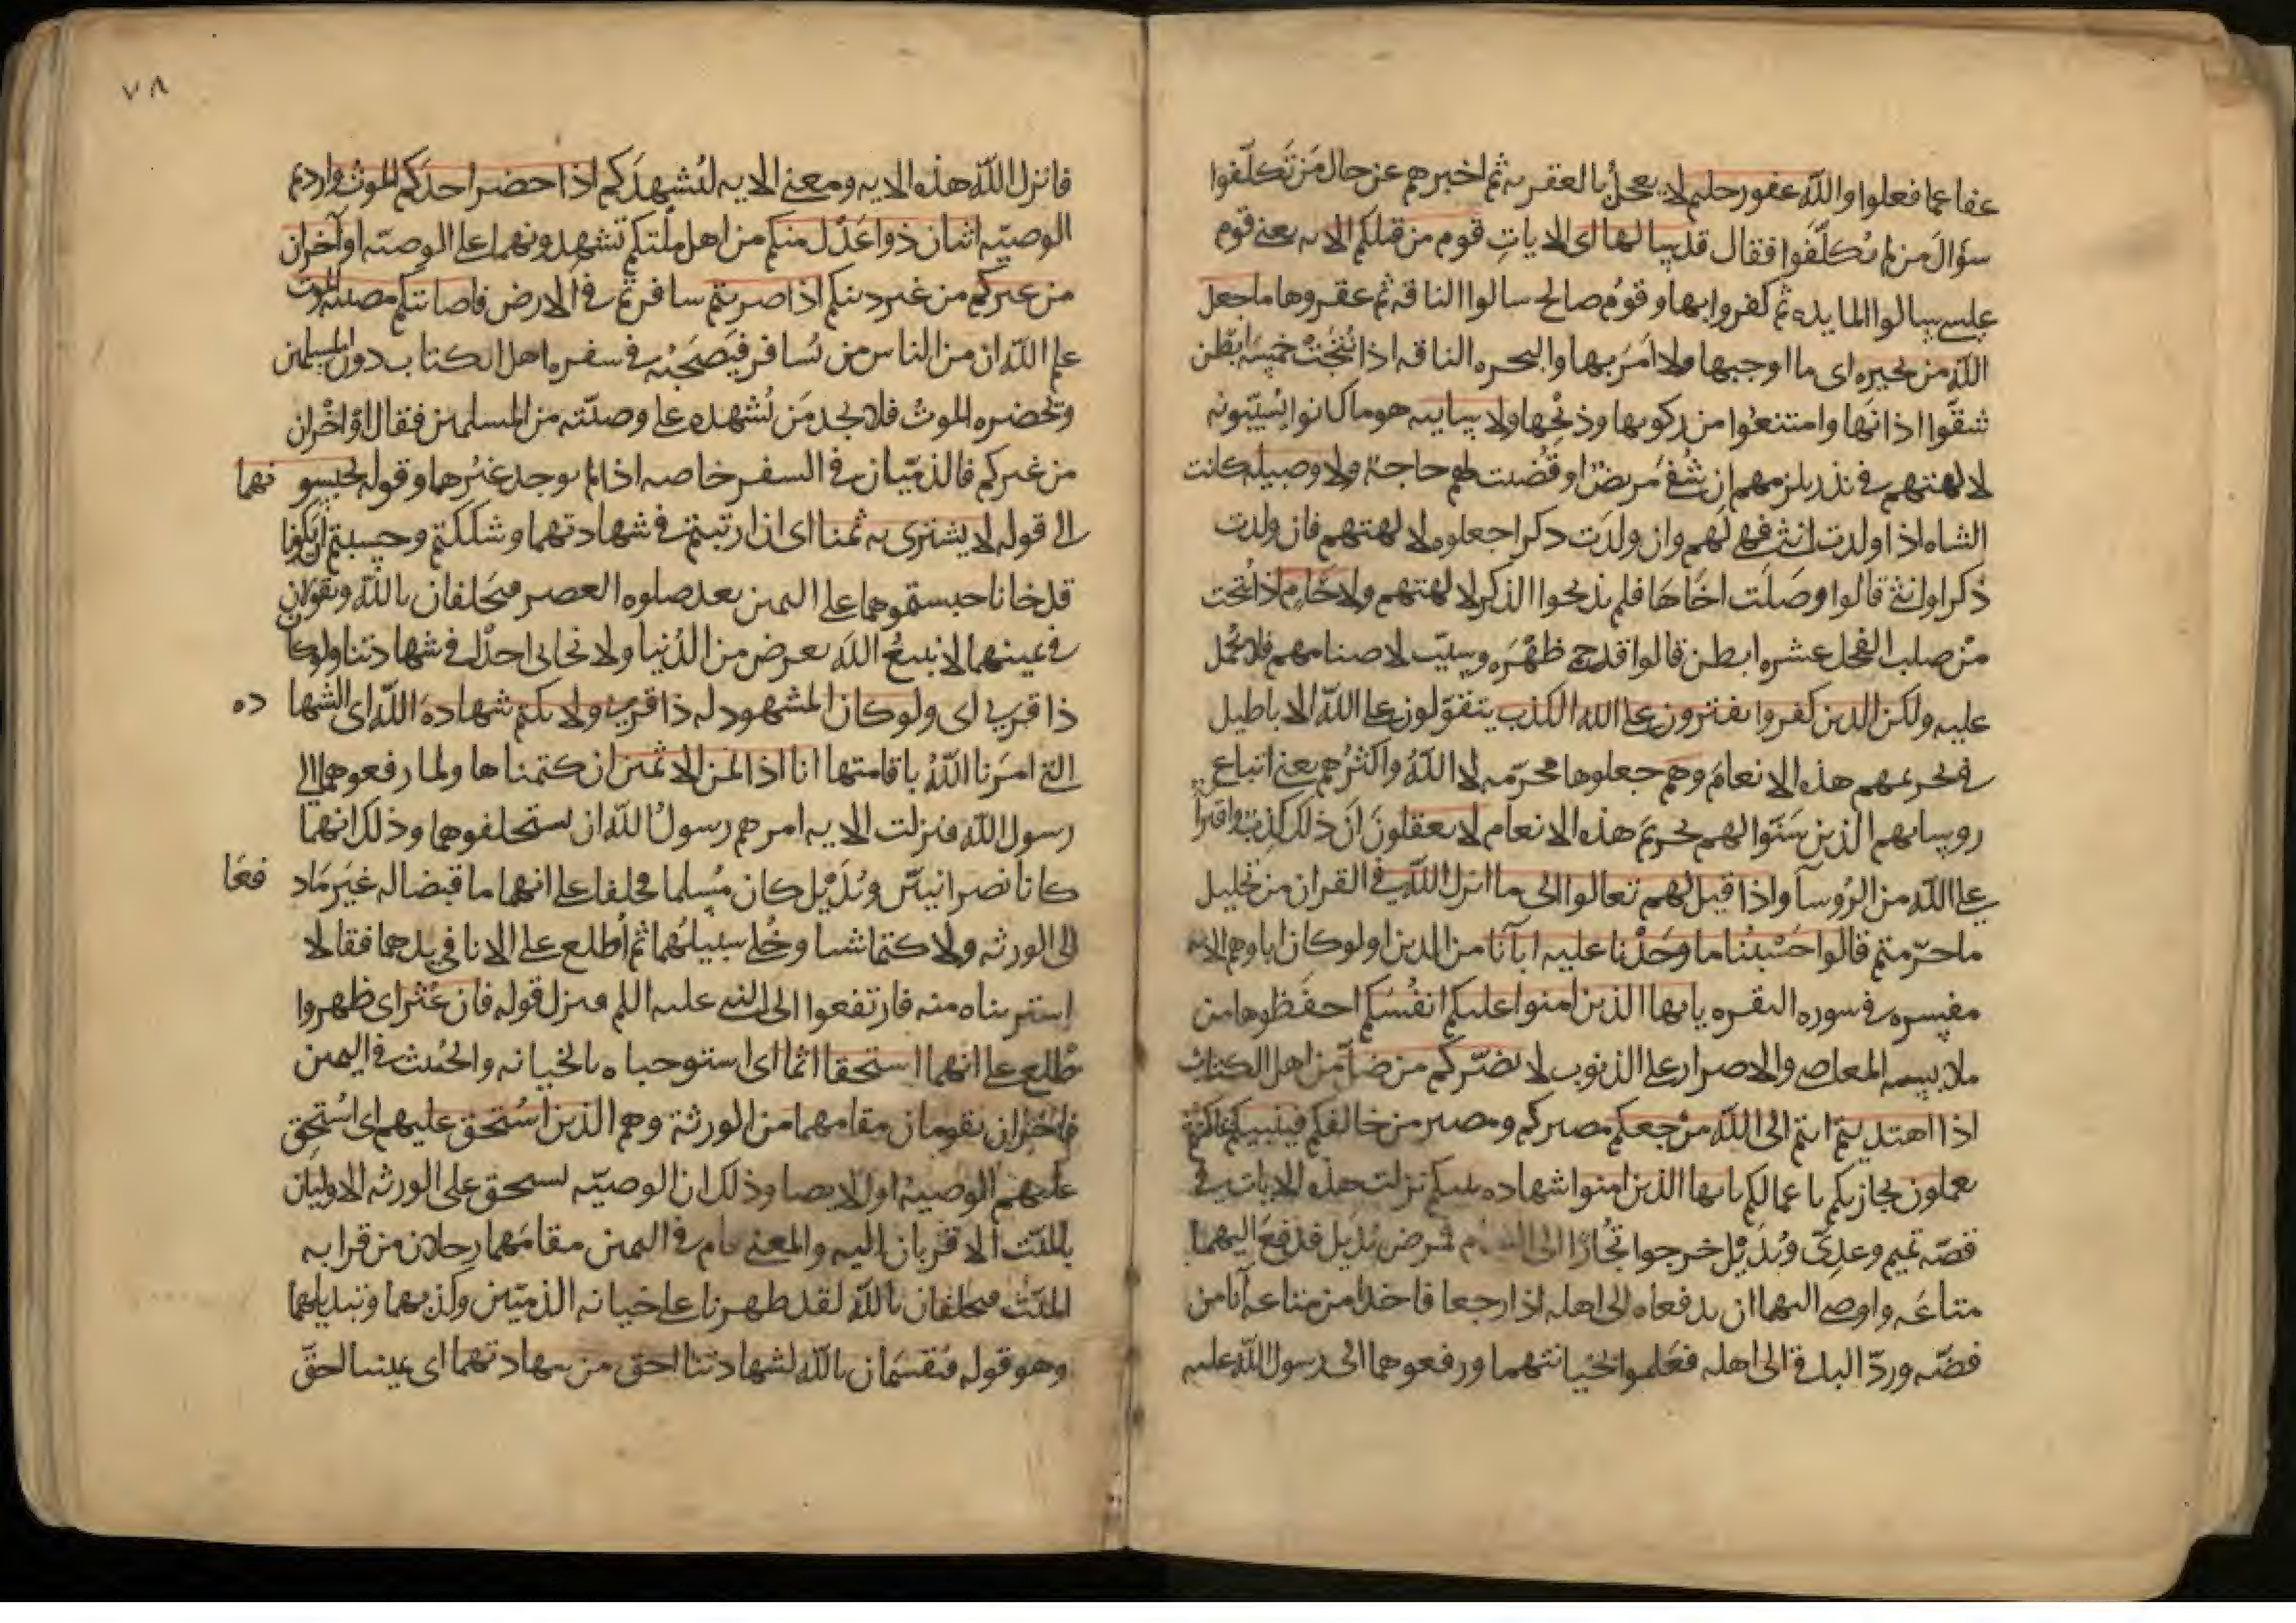 عفا عما فعلوا والله غفور حليم لا يعجل بالعقوبة ثم اخبرهم عن حال من تكلفوا
سؤال من لم يكلفوا فقال قد سالها اى الايات قوم من قبلكم الايه يعنى قوم
عيسى سالوا المايده ثم كفروا بها وقوم صالح سالوا الناقه ثم عقروها ما جعل
الله من بحيره اى ما اوجبها ولا امر بها والبحيره الناقه اذا نتجت خمسة ابطن
شقوا اذانها وامتنعوا من ركوبها وذبحها ولا سايبه هو ما كانوا يسيبونه
لالهتهم فى نذر يلزمهم ان شفى مريض او قضيت لهم حاجة ولا وصيله كانت
الشاه اذا ولدت انثى فهى لهم وان ولدت ذكرا جعلوه لالهتهم فان ولدت
ذكرا وانثى قالوا وصلت اخاها فلم يذبحوا الذكر لالهتهم ولا حام اذا نتجت
من صلب الفحل عشره ابطن قالوا قد حمى ظهره وسيب لاصنامهم فلا يحمل
عليه ولكن الذين كفروا يفترون على الله الكذب يتقولون على الله الاباطيل
فى تحريمهم هذه الانعام وهم جعلوها محرمه لا الله واكثرهم يعنى اتباع
روسايهم الذين سنوا لهم تحريم هذه الانعام لا يعقلون ان ذلك كذب وافترا
على الله من الروسآ واذا قيل لهم تعالوا الى ما انزل الله فى القران من تحليل
ما حرمتم قالوا حسبنا ما وجدنا عليه ابآنا من الدين اولو كان اباوهم الايه
مفسره فى سوره البقره يايها الذين امنوا عليكم انفسكم احفظوها من
ملابسه المعاصى والاصرار على الذنوب لا يضركم من ضل من اهل الكتاب
اذا اهتديتم انتم الى الله مرجعكم مصيركم ومصير من خالفكم فينبيكم بما كنتم
تعملون يجازيكم باعمالكم يايها الذين امنوا شهاده بينكم نزلت هذه الايات فى
قصه تميم وعدى وبديل خرجوا تجارا الى الشام فمرض بديل فدفع اليهما
متاعه واوصى اليهما ان يدفعاه الى اهله اذا رجعا فاخذا من متاعه انا من
فضه وردا الباقى الى اهله فعلموا بخيانتهما ورفعوهما الى رسول الله عليه
٧٨
فانزل الله هذه الايه ومعنى الايه ليشهدكم اذا حضر احدكم الموت واردتم
الوصيه اثنان ذوا عدل منكم من اهل ملتكم تشهدونهما على الوصيه او آخران
من غيركم من غير دينكم اذا ضربتم سافرتم فى الارض فاصابتكم مصيبه الموت
علم الله ان من الناس من يسافر فيصحبه فى سفره اهل الكتاب دون المسلمين
ويحضره الموت فلا يجد من يشهده على وصيته من المسلمين فقال او آخران
من غيركم فالذميان فى السفر خاصه اذا لم يوجد غيرهما وقوله تحبسونهما
الى قوله لا يشترى به ثمنا اى اذا ارتبتم فى شهادتهما وشككتم وحسبتم ان يكونا
قد خانا حبستموهما على اليمين بعد صلوه العصر فيحلفان بالله ويقولان
فى يمينهما لا نبيع الله بعرض من الدنيا ولا نحابى احدا فى شهادتنا ولو كان
ذا قربى اى ولو كان المشهود له ذا قربى ولا نكتم شهادة الله اى الشهاده
التى امرنا الله باقامتها انا اذا لمن الاثمين ان كتمناها ولما رفعوهما الى
رسول الله فنزلت الايه امرهم رسول الله ان يستحلفوهما وذلك انهما
كانا نصرانيين وبديل كان مسلما فحلفا على انهما ما قبضا له غير ما دفعا
الى الورثه ولا كتما شيا وخلى سبيلهما ثم اطلع على الانا فى يدهما فقالا
اشتريناه منه فارتفعوا الى النبى عليه السلم فنزل قوله فان عثر اى ظهروا
طلع على انهما استحقا اثما اى استوجباه بالخيانه والحنث فى اليمين
فاخران يقومان مقامهما من الورثة وهم الذين استحق عليهم اى استحق
عليهم الوصيه او الايصا وذلك ان الوصيه تستحق على الورثه الاوليان
بالميت الاقربان اليه والمعنى قام فى اليمين مقامهما رجلان من قرابه
الميت فيحلفان بالله لقد ظهرنا على خيانه الذميين وكذبهما وتبديلهما
وهو قوله فيقسمان بالله لشهادتنا احق من شهادتهما اى يميننا احق